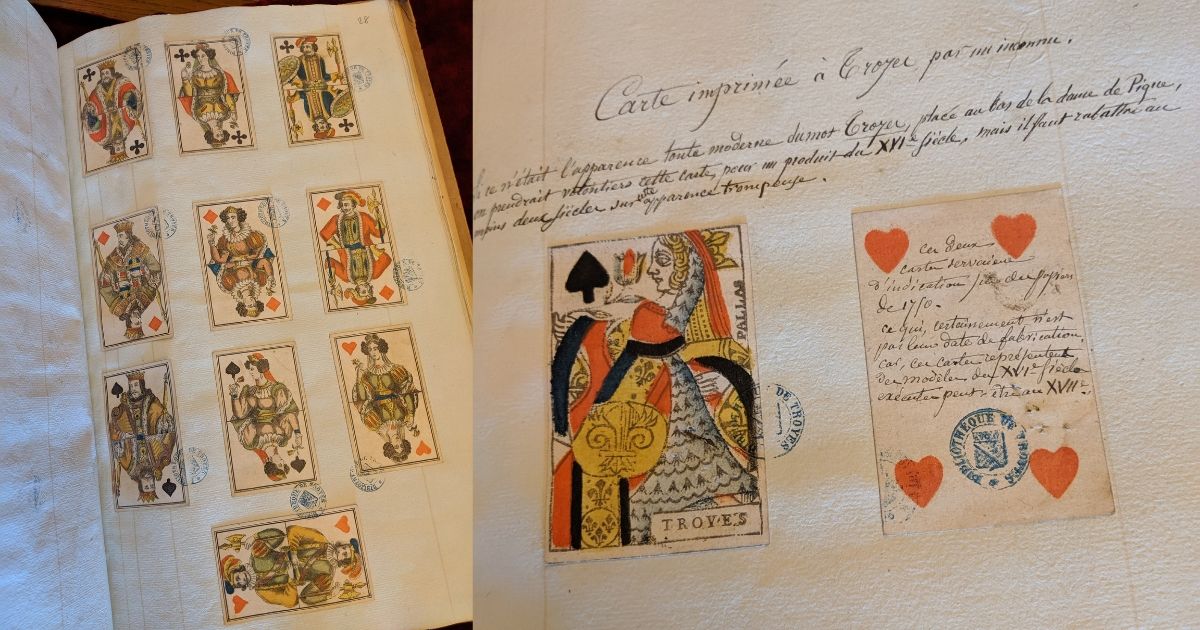 28
Carte imprimée à Troyes par un inconnu.
Si ce n'était l'apparence toute moderne du mot Troyes, placé au bas de la dame de Pique,
on prendrait volontiers cette carte, pour un produit du XVIe Siècle, mais il faut rabattre au
moins deux Siècles sur cette apparence trompeuse.
PALLAS
TROYES
DE TROYES
ces deux
cartes servaient
d'indication
de 1750.
ce qui, certainement n'est
pas leur date de fabrication,
car, ces cartes représentent
des modèles du XVIe Siècle
exécutés peut-être au XVIIe.
BIBLIOTHÈQUE DE TROYES